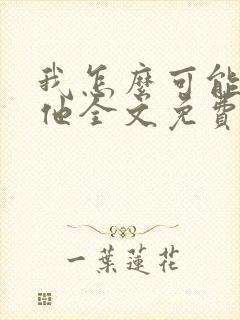 我怎麼可能
他全文免費
一葉蓮花